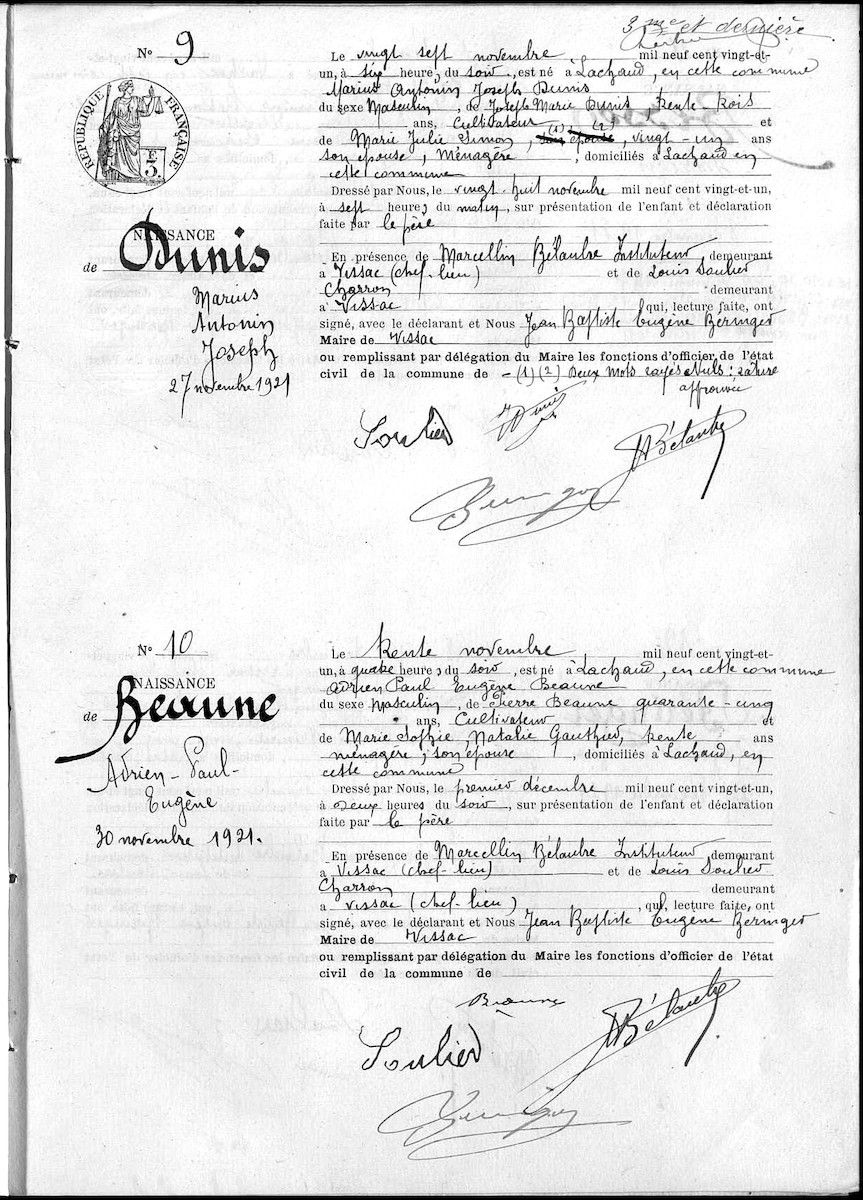 3me et dernière
No 9
RÉPUBLIQUE FRANÇAISE
NAISSANCE
de Dunis
Marius
Antonin
Joseph
27 novembre 1921
Le vingt sept novembre mil neuf cent vingt-et-
un, à six heures du soir, est né à Lachaud, en cette commune
Marius Antonin Joseph Dunis
du sexe Masculin, de Joseph Marie Dunis trente-trois
ans, Cultivateur et
de Marie Julie Simon, son (1) épouse (2), vingt-un ans
son épouse, Ménagère, domiciliés à Lachaud en
cette commune
Dressé par Nous, le vingt huit novembre mil neuf cent vingt-et-un,
à sept heures du matin, sur présentation de l'enfant et déclaration
faite par le père
En présence de Marcellin Bélaubre Instituteur demeurant
à Vissac (chef-lieu) et de Louis Soulier
Charron demeurant
à Vissac qui, lecture faite, ont
signé, avec le déclarant et Nous Jean Baptiste Eugène Beringer
Maire de Vissac
ou remplissant par délégation du Maire les fonctions d'officier de l'état
civil de la commune de - (1) (2) Deux mots rayés nuls : rature
approuvée
Soulier Dunis
Bélaubre
Beringer
No 10
NAISSANCE
de Beaune
Adrien-Paul-
Eugène
30 novembre 1921.
Le trente novembre mil neuf cent vingt-et-
un, à quatre heures du soir, est né à Lachaud, en cette commune
Adrien Paul Eugène Beaune
du sexe Masculin, de Pierre Beaune quarante-cinq
ans, Cultivateur et
de Marie Sophie Natalie Gauthier, trente ans
ménagère, son épouse, domiciliés à Lachaud, en
cette commune
Dressé par Nous, le premier décembre mil neuf cent vingt-et-un,
à deux heures du soir, sur présentation de l'enfant et déclaration
faite par le père
En présence de Marcellin Bélaubre Instituteur demeurant
à Vissac (chef-lieu) et de Louis Soulier
Charron demeurant
à Vissac (chef-lieu), qui, lecture faite, ont
signé, avec le déclarant et Nous Jean Baptiste Eugène Beringer
Maire de Vissac
ou remplissant par délégation du Maire les fonctions d'officier de l'état
civil de la commune de
Beaune
Bélaubre
Soulier
Beringer